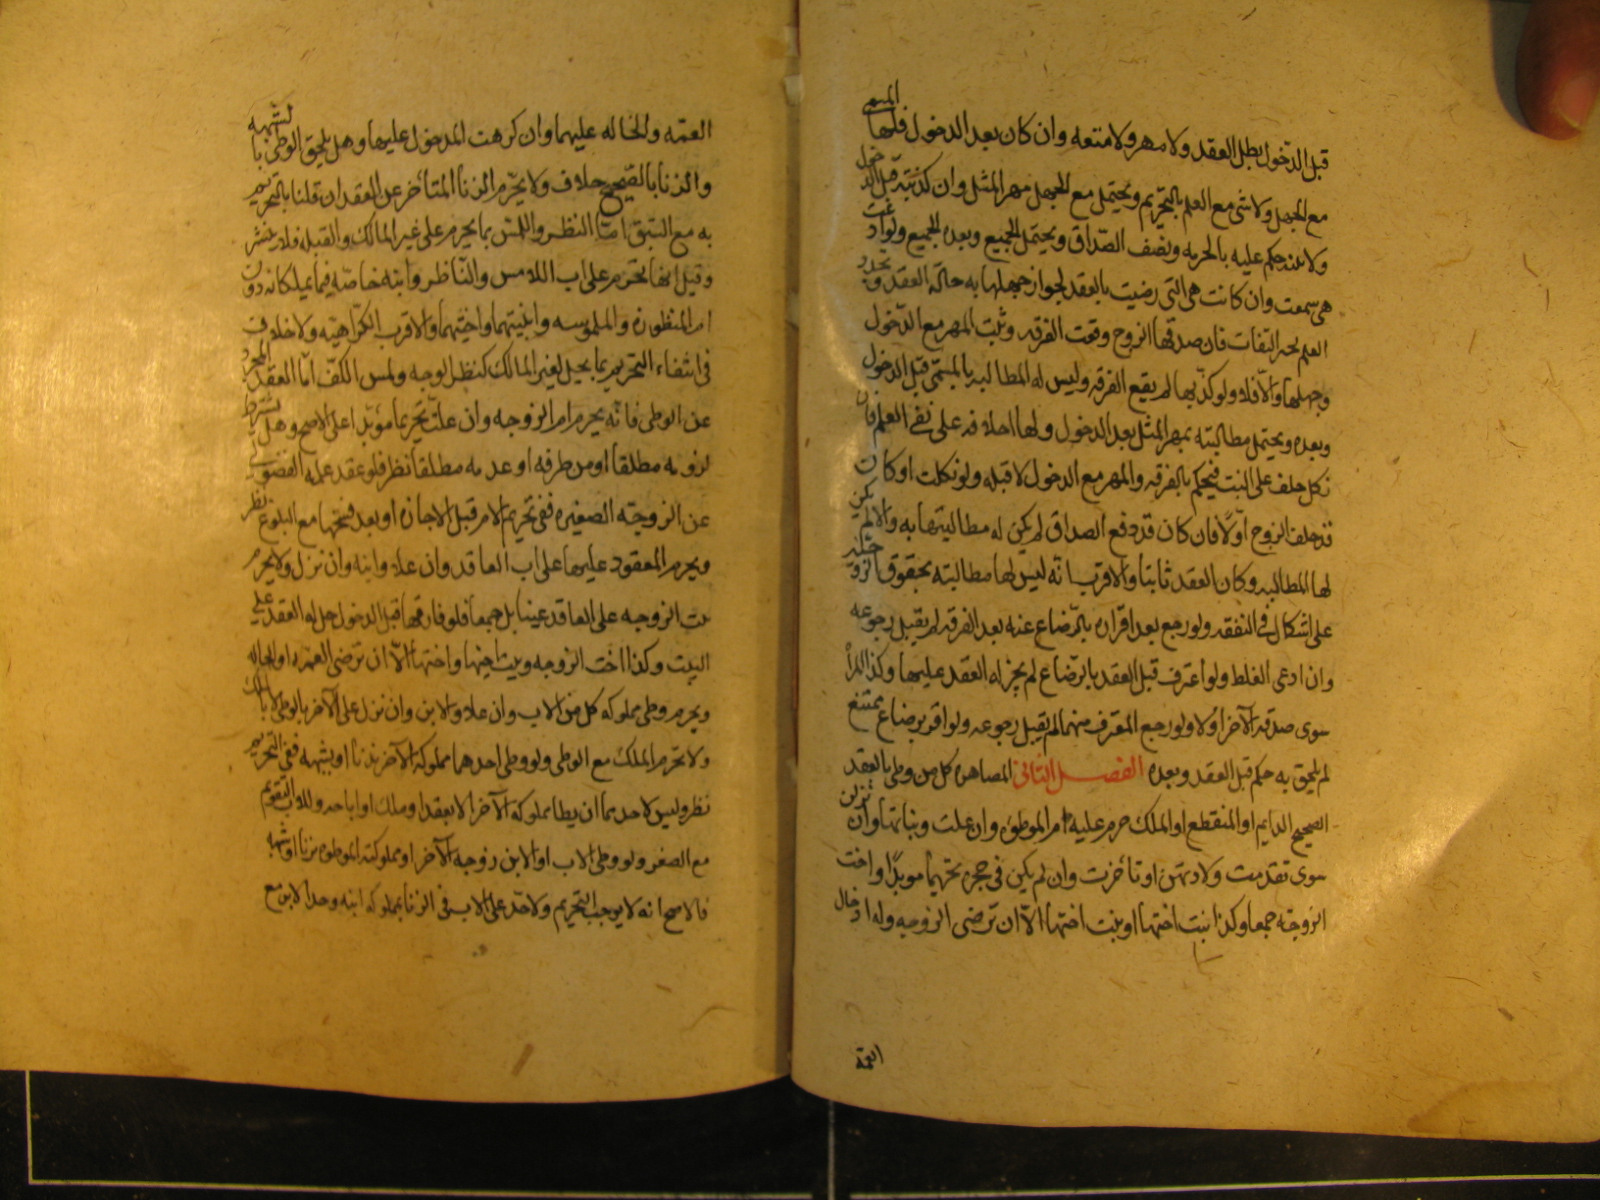 قبل الدخول بطل العقد ولا مهر ولا متعه وان كان بعد الدخول فلها المسمى
مع الجهل ولا شى مع العلم بالتحريم ويحتمل مع الجهل مهر المثل وان كذبته قبل الدخول
ولا بينه حكم عليه بالحرمه وبنصف الصداق ويحتمل الجميع وبعده الجميع ولو ادعت
هى سمعت وان كانت هى التى رضيت بالعقد لجواز جهلها به حالة العقد وتجدد
العلم لخبر الثقات فان صدقها الزوج وقعت الفرقه وثبت المهر مع الدخول
وجهلها والا فلا ولو كذبها لم يقع الفرقه وليس له المطالبه بالمسمى قبل الدخول
وبعده ويحتمل مطالبته بمهر المثل بعد الدخول ولها احلافه على نفى العلم فان
نكل حلف على البت فيحكم بالفرقه والمهر مع الدخول لا قبله ولو نكلت او كان
قد حلف الزوج اولا فان كان قد دفع الصداق لم يكن له مطالبتها به والا لم يكن
لها المطالبه وكان العقد ثابتا والاقرب انه ليس لها مطالبته بحقوق الزوجية
على اشكال فى النفقه ولو رجع بعد اقراره بالرضاع عنه بعد الفرقه لم يقبل رجوعه
وان ادعى الغلط ولو اعترف قبل العقد بالرضاع لم يجز له العقد عليها وكذا المرأ
سوى صدقه الآخر اولا ولو رجع المقر منهما لم يقبل رجوعه ولو اقر برضاع ممتنع
لم يلحق به حكم قبل العقد وبعده الفصل الثانى المصاهره كل من وطى بالعقد
الصحيح الدايم او المنقطع او الملك حرم عليه ام الموطوه وان علت وبناتها وان نزلن
سوى تقدمت ولادتهن او تأخرت وان لم يكن فى حجره تحريما موبدا واخت
الزوجه جمعا وكذا بنت اختها او بنت اخيها الا ان ترضى الزوجه وله ادخال
العمه
العمه والخاله عليهما وان كرهت المدخول عليها وهل يلحق الوطى بالشبهه
والزنا بالصحيح خلاف ولا يحرم الزنا المتأخر عن العقد ان قلنا بالتحريم
به مع السبق اما النظر واللمس بما يحرم على غير المالك والقبله فلا ينشر
وقيل انها تحرم على اب اللامس والناظر وابنه خاصه فيما يملكانه دون
ام المنظوره والملموسه وابنيتهما واختهما والاقرب الكراهيه ولا خلاف
فى انتفاء التحريم بما يحل لغير المالك كنظر الوجه ولمس الكف اما العقد المجرد
عن الوطى فانه يحرم ام الزوجه وان علت تحريما موبدا على الاصح وهل يشترط
لزومه مطلقا او من طرفه او عدمه مطلقا نظر فلو عقد عليه الفضولى
عن الزوجه الصغيره ففى تحريم الام قبل الاجازه او بعد فسخها مع البلوغ نظر
ويحرم المعقود عليها على اب العاقد وان علا وابنه وان نزل ولا يحرم
بنت الزوجه على العاقد عينا بل جمعا فلو فارقها قبل الدخول حل له العقد على
البنت وكذا اخت الزوجه وبنت اخيها واختها الا ان ترضى العمه او الخاله
ويحرم وطى مملوكه كل من الاب وان علا والابن وان نزل على الآخر بالوطى لا بالملك
ولا تحرم الملك مع الوطى ولو وطى احدهما مملوكة الآخر بزنا او بشبهه ففى التحريم
نظر وليس لاحدهما ان يطا مملوكه الآخر الا بعقد او ملك او اباحه وللاب التقويم
مع الصغر ولو وطى الاب او الابن زوجه الآخر او مملوكته الموطوه بزنا او شبهه
فالاصح انه لا يوجب التحريم ولا حد على الاب فى الزنا بمملوكه ابنه وحد الابن مع